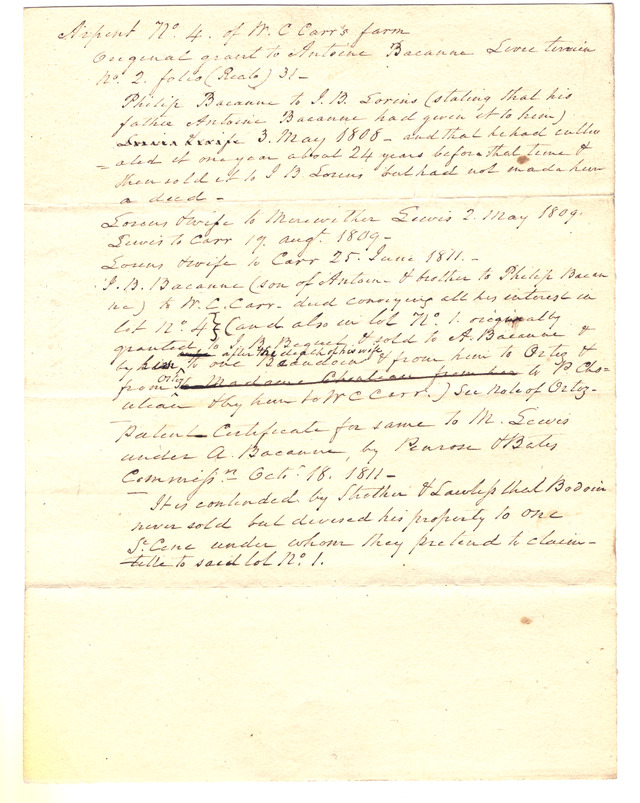 Arpent No. 4. of W. C Carr's farm
Original grant to Antoine Bacanne Livre terrein
No. 2. folio (Reals) 31-
Philip Bacanne to J. B. Lorins (stating that his
father Antoine Bacanne had given it to him)
& wife 3. May 1808 - and that he had cultiv
=ated it one year about 24 years before that time &
then sold it to J B Lorens but had not made him
a deed -
Lorens & wife to Meriwether Lewis 2. May 1809.
Lewis to Carr 19. augt. 1809-
Lorens & wife to Carr 25. June 1811.-
J. B. Bacanne (son of Antoine & brother to Philip Bacan
ne) to W. C. Carr - deed conveying all his interest in
lot No. 4 } (and also in lot No. 1. originally
granted to J. B. Bequet & sold to A. Bacanne &
after the death of his wife
by him to one Beaudoin & from him to Ortez &
from Ortez to Madame Chouteau from her to P Cho-
uteau & by him to W C Carr.) See Note of Ortez-
Patent Certificate for same to M. Lewis
under A. Bacanne, by Penrose & Bates
Commissrs. Octr. 18. 1811-
It is contended by Strother & Lawless that Bodoin
never sold but devised his property to one
St. Cene under whom they pretend to claim-
title to said lot No. 1.